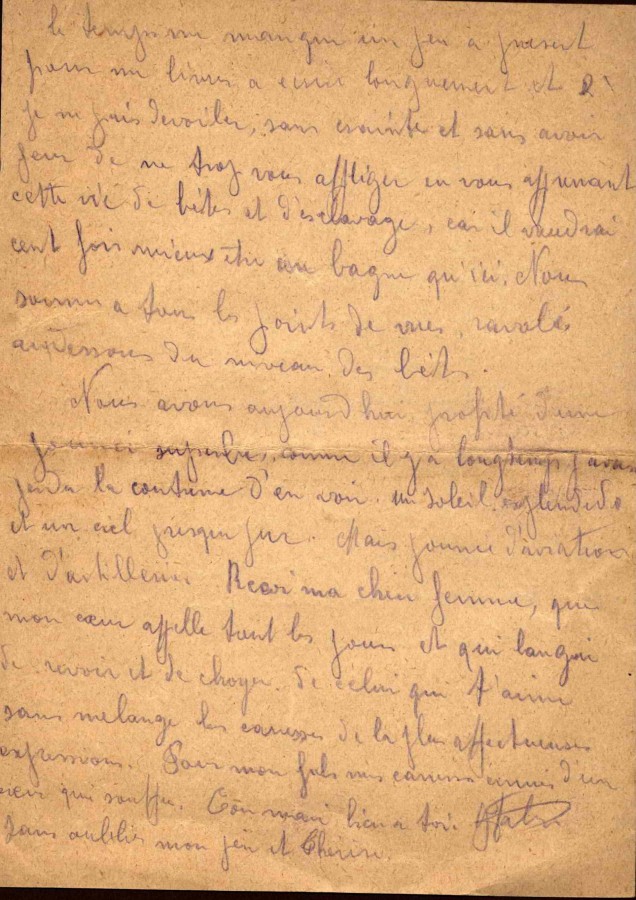 le temps me manque un peu à present
pour me livrer a ecrire longuement et 
je ne puis devoiler, sans crainte et sans avoir
peur de ne trop vous affliger en vous apprenant
cette vie de bêtes et d'esclavage, car il vaudrai
cent fois mieux être au bagne qu'ici. Nous
sommes a tous les points de vues, ravalés
audessous du niveau des bêtes.
Nous avons aujourd'hui profité d'une
journeé superbe, comme il y a longtemps j'avais
perdu la coutume d'en voir. un soleil splendide
et un ciel presque pur. Mais journeé d'aviation
et d'artillerie. Recoi ma chère femme, que
mon cœur appelle tout les jours et qui langui
de revoir et de choyer. de celui qui t'aime
sans melange les caresses de la plus affectueuses
expressions. Pour mon fils mes caresses émues d'un
cœur qui souffre. Ton mari bien a toi.
Sans oublier mon et Cherise.